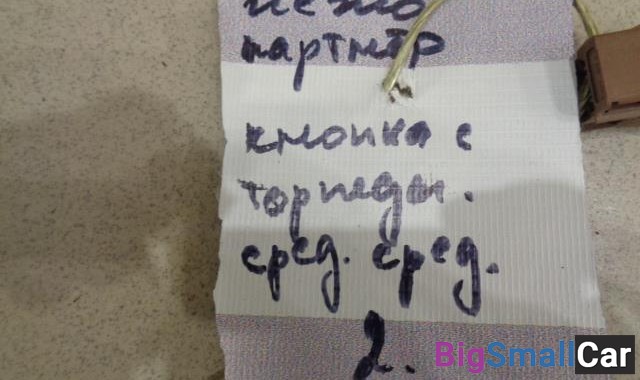 пежо
партнер
кнопка с
торпеды.
сред. сред.
2.
BigSmallCar